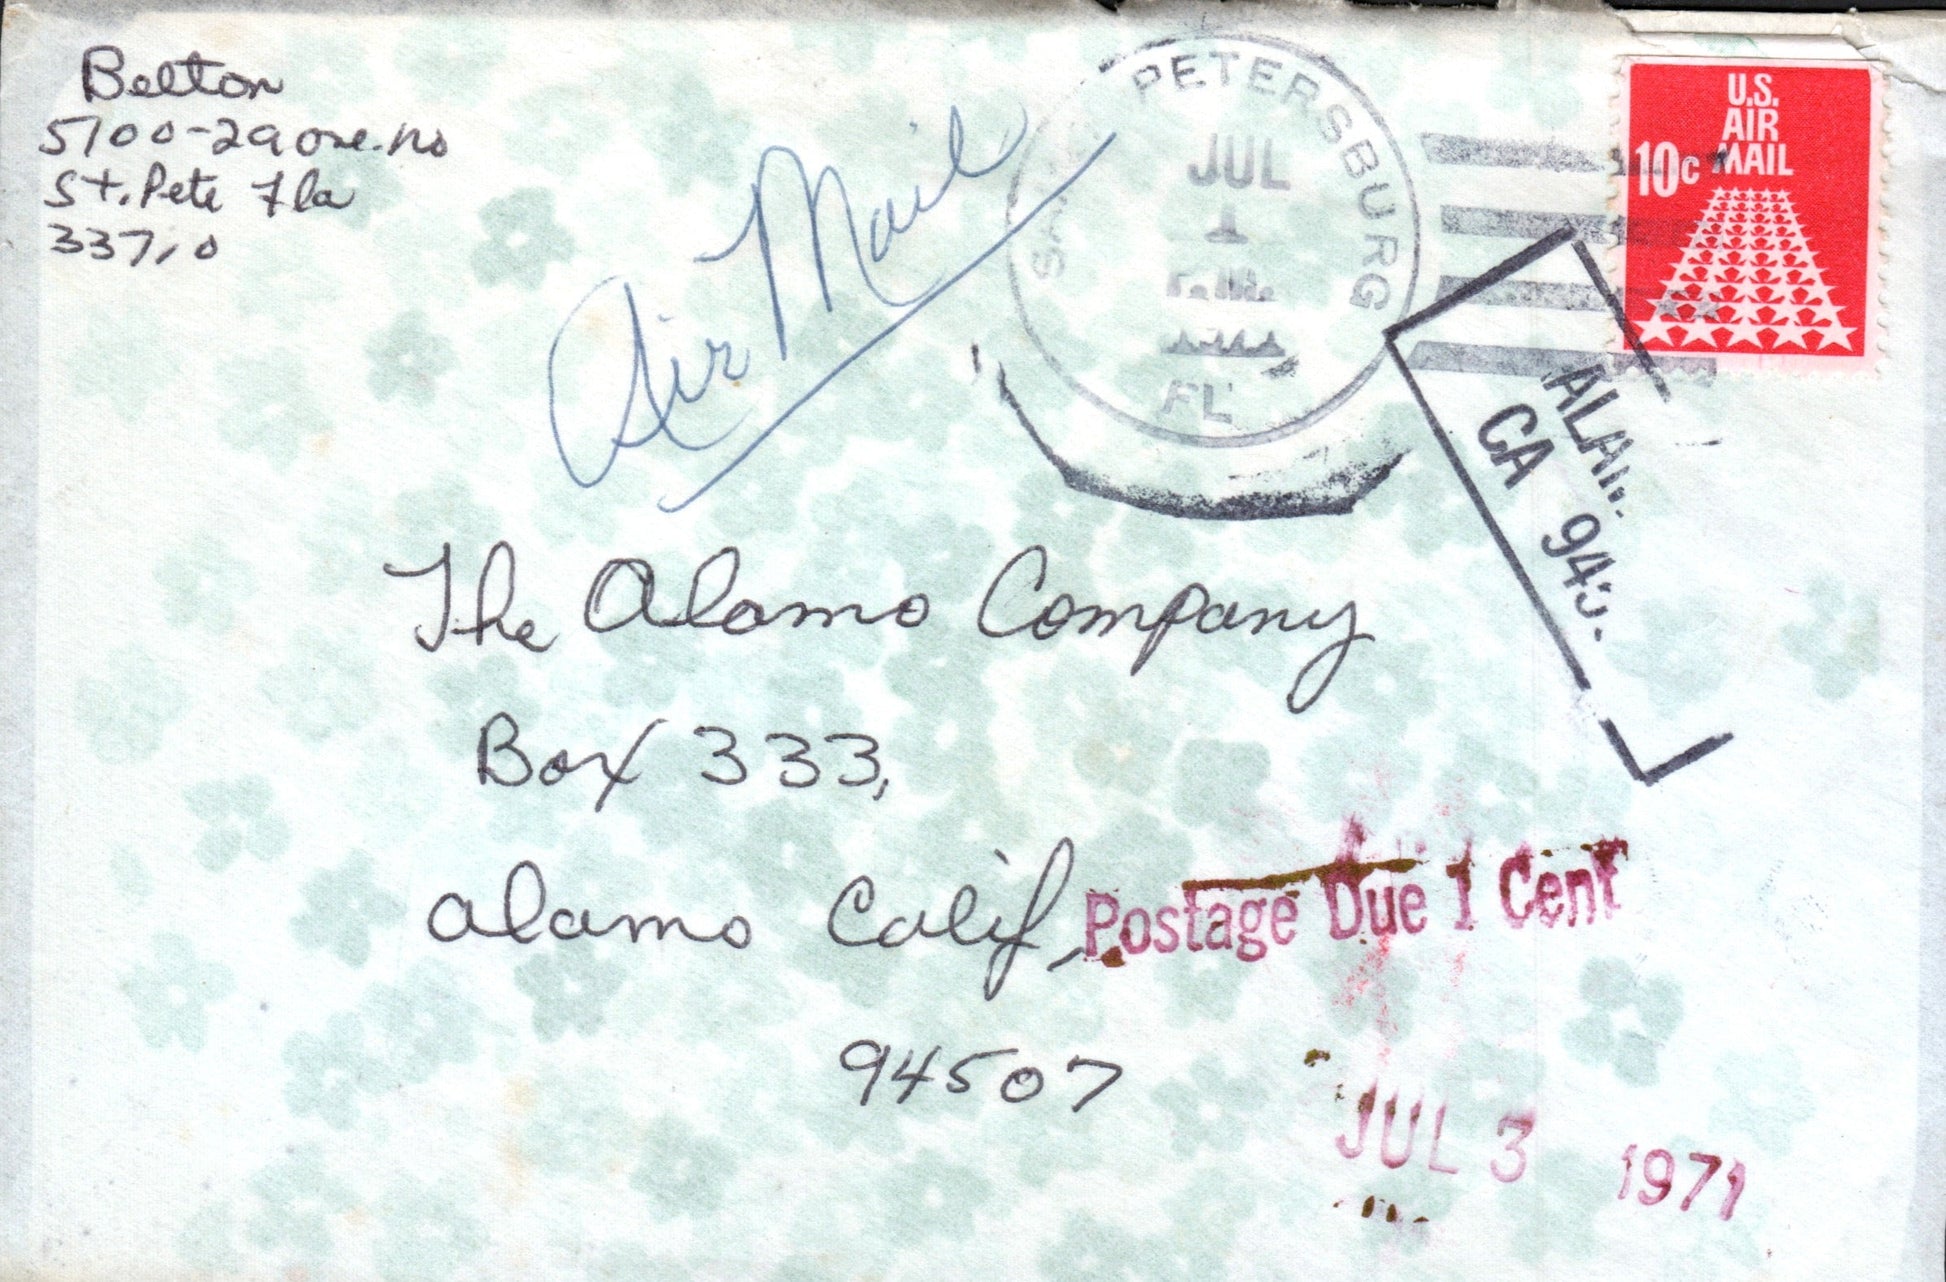 Belton
5100-29 ave. no
St. Pete Fla
33710
Air Mail
PETERSBURG
JUL
1
FL
U.S.
AIR
MAIL
10c
CA 945
The Alamo Company
Box 333,
Alamo Calif,
94507
Postage Due 1 Cent
JUL 3 1971